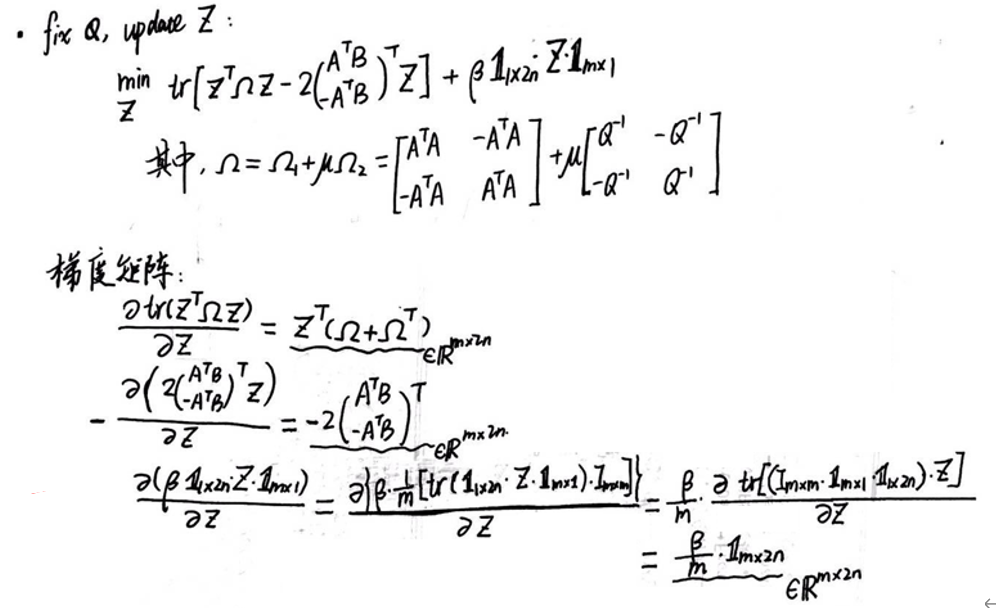 · fix Q, update Z:
min_Z tr[Z^TΩZ - 2(A^TB; -A^TB)^T Z] + β 𝟙_{1×2n}·Z·𝟙_{m×1}
其中, Ω = Ω_1 + μΩ_2 = [A^TA -A^TA; -A^TA A^TA] + μ[Q^{-1} -Q^{-1}; -Q^{-1} Q^{-1}]
梯度矩阵:
∂tr(Z^TΩZ)/∂Z = Z^T(Ω+Ω^T) ∈ℝ^{m×2n}
- ∂(2(A^TB; -A^TB)^T Z)/∂Z = -2(A^TB; -A^TB)^T ∈ℝ^{m×2n}
∂(β 𝟙_{1×2n}·Z·𝟙_{m×1})/∂Z = ∂{β·1/m[tr(𝟙_{1×2n}·Z·𝟙_{m×1})·I_{m×m}]}/∂Z = β/m · ∂tr[(I_{m×m}·𝟙_{m×1}·𝟙_{1×2n})·Z]/∂Z
= β/m · 𝟙_{m×2n} ∈ℝ^{m×2n}